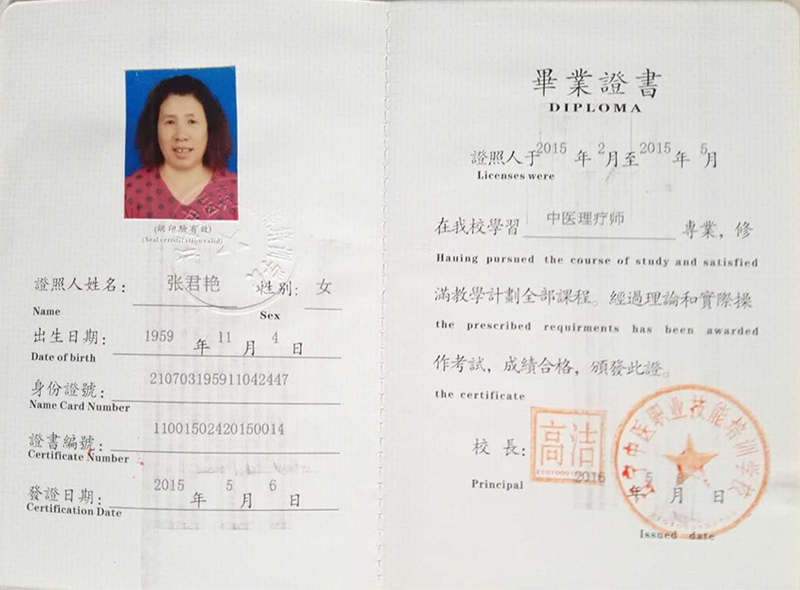 (鋼印驗有效)
(Seal certification valid)
證照人姓名： 张君艳 性别： 女
Name Sex
出生日期： 1959 年 11 月 4 日
Date of birth
身份證號： 210703195911042447
Name Card Number
證書編號： 11001502420150014
Certificate Number
發證日期： 2015 年 5 月 6 日
Certification Date
畢業證書
DIPLOMA
證照人于 2015 年 2 月至 2015 年 5 月
Licenses were
在我校學習 中医理疗师 專業，修
Hauing pursued the course of study and satisfied
滿教學計劃全部課程。經過理論和實際操
the prescribed requirments has been awarded
作考試，成績合格，頒發此證。
the certificate
校長： 高洁
Principal
中医职业技能培训学校
2016 年 5 月 日
Issued date